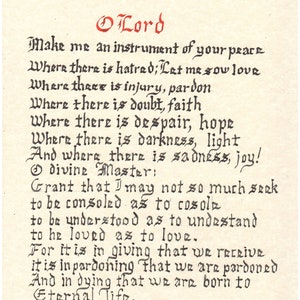 O Lord
Make me an instrument of your peace
Where there is hatred; Let me sow love
Where there is injury, pardon
Where there is doubt, faith
Where there is despair, hope
Where there is darkness, light
And where there is sadness, joy!
O divine Master:
Grant that I may not so much seek
to be consoled as to cosole
to be understood as to undestand
to be loved as to love.
For it is in giving that we receive
it is in pardoning that we are pardoned
And in dying that we are born to
Eternal life.